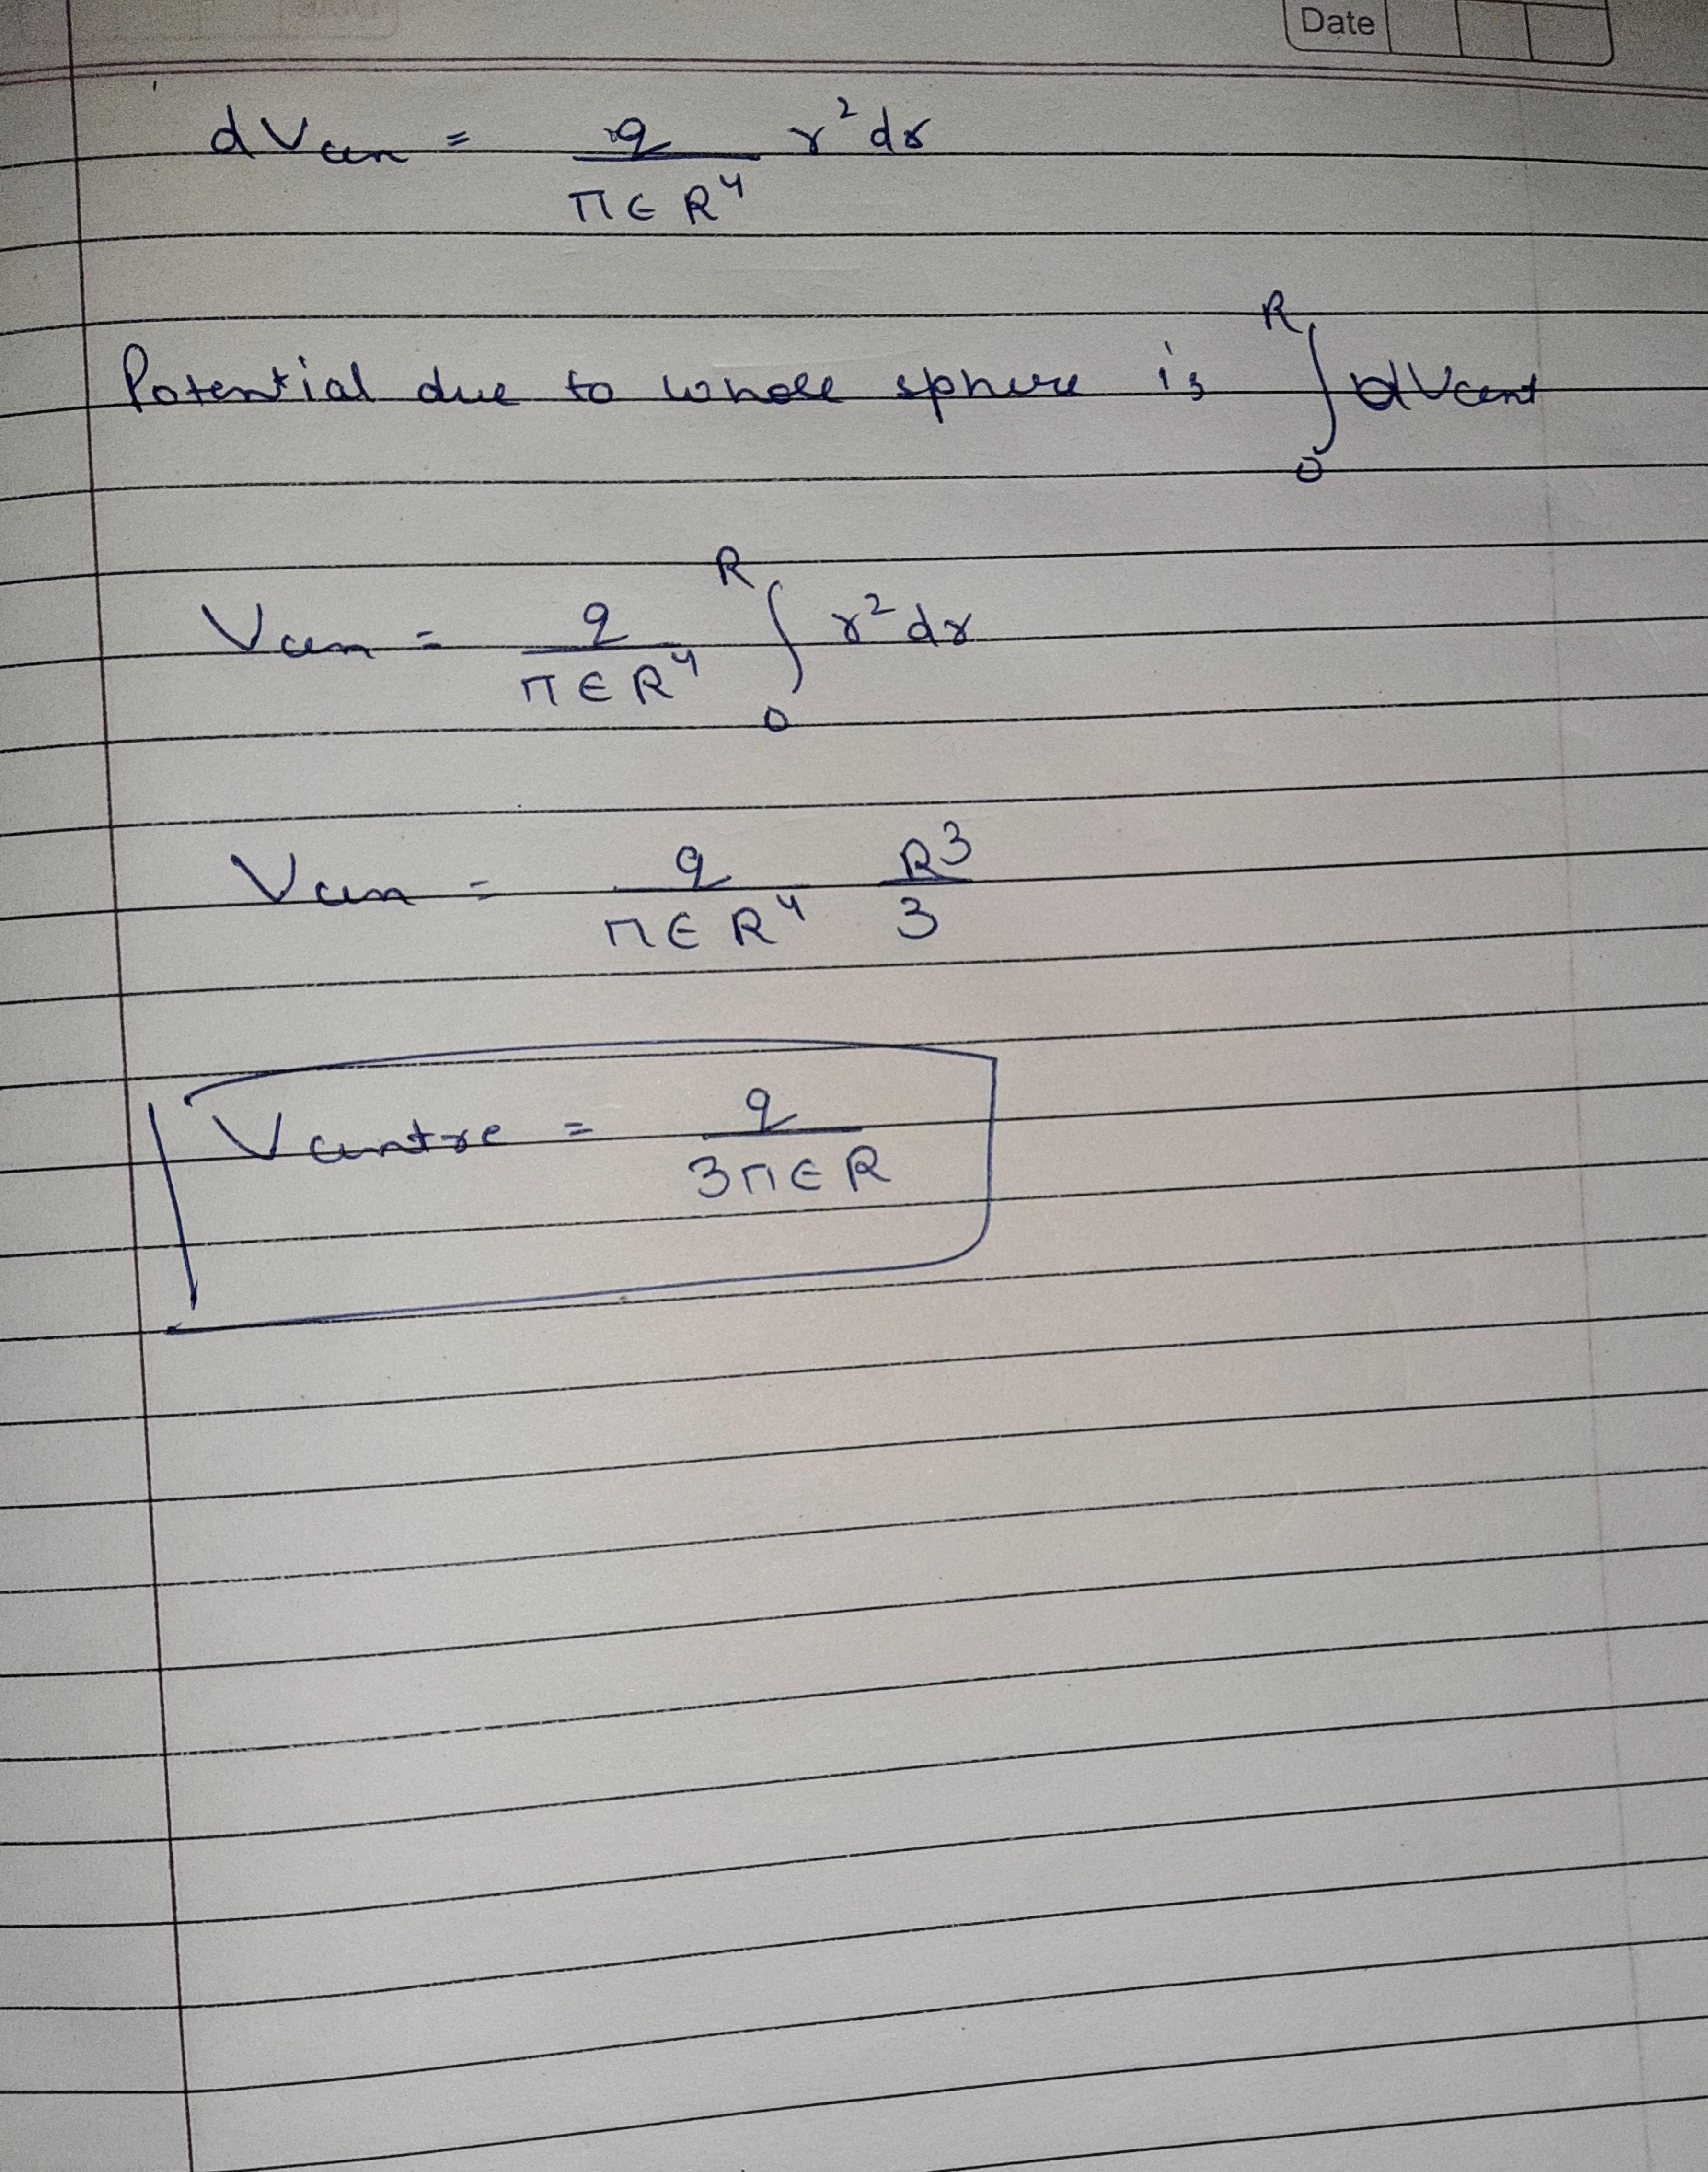 Date
dVcen = q/π∈R⁴ r²dr
Potential due to whole sphere is ∫₀ᴿ dVcent
Vcen = q/π∈R⁴ ∫₀ᴿ r²dr
Vcen = q/π∈R⁴ R³/3
Vcentre = q/3π∈R